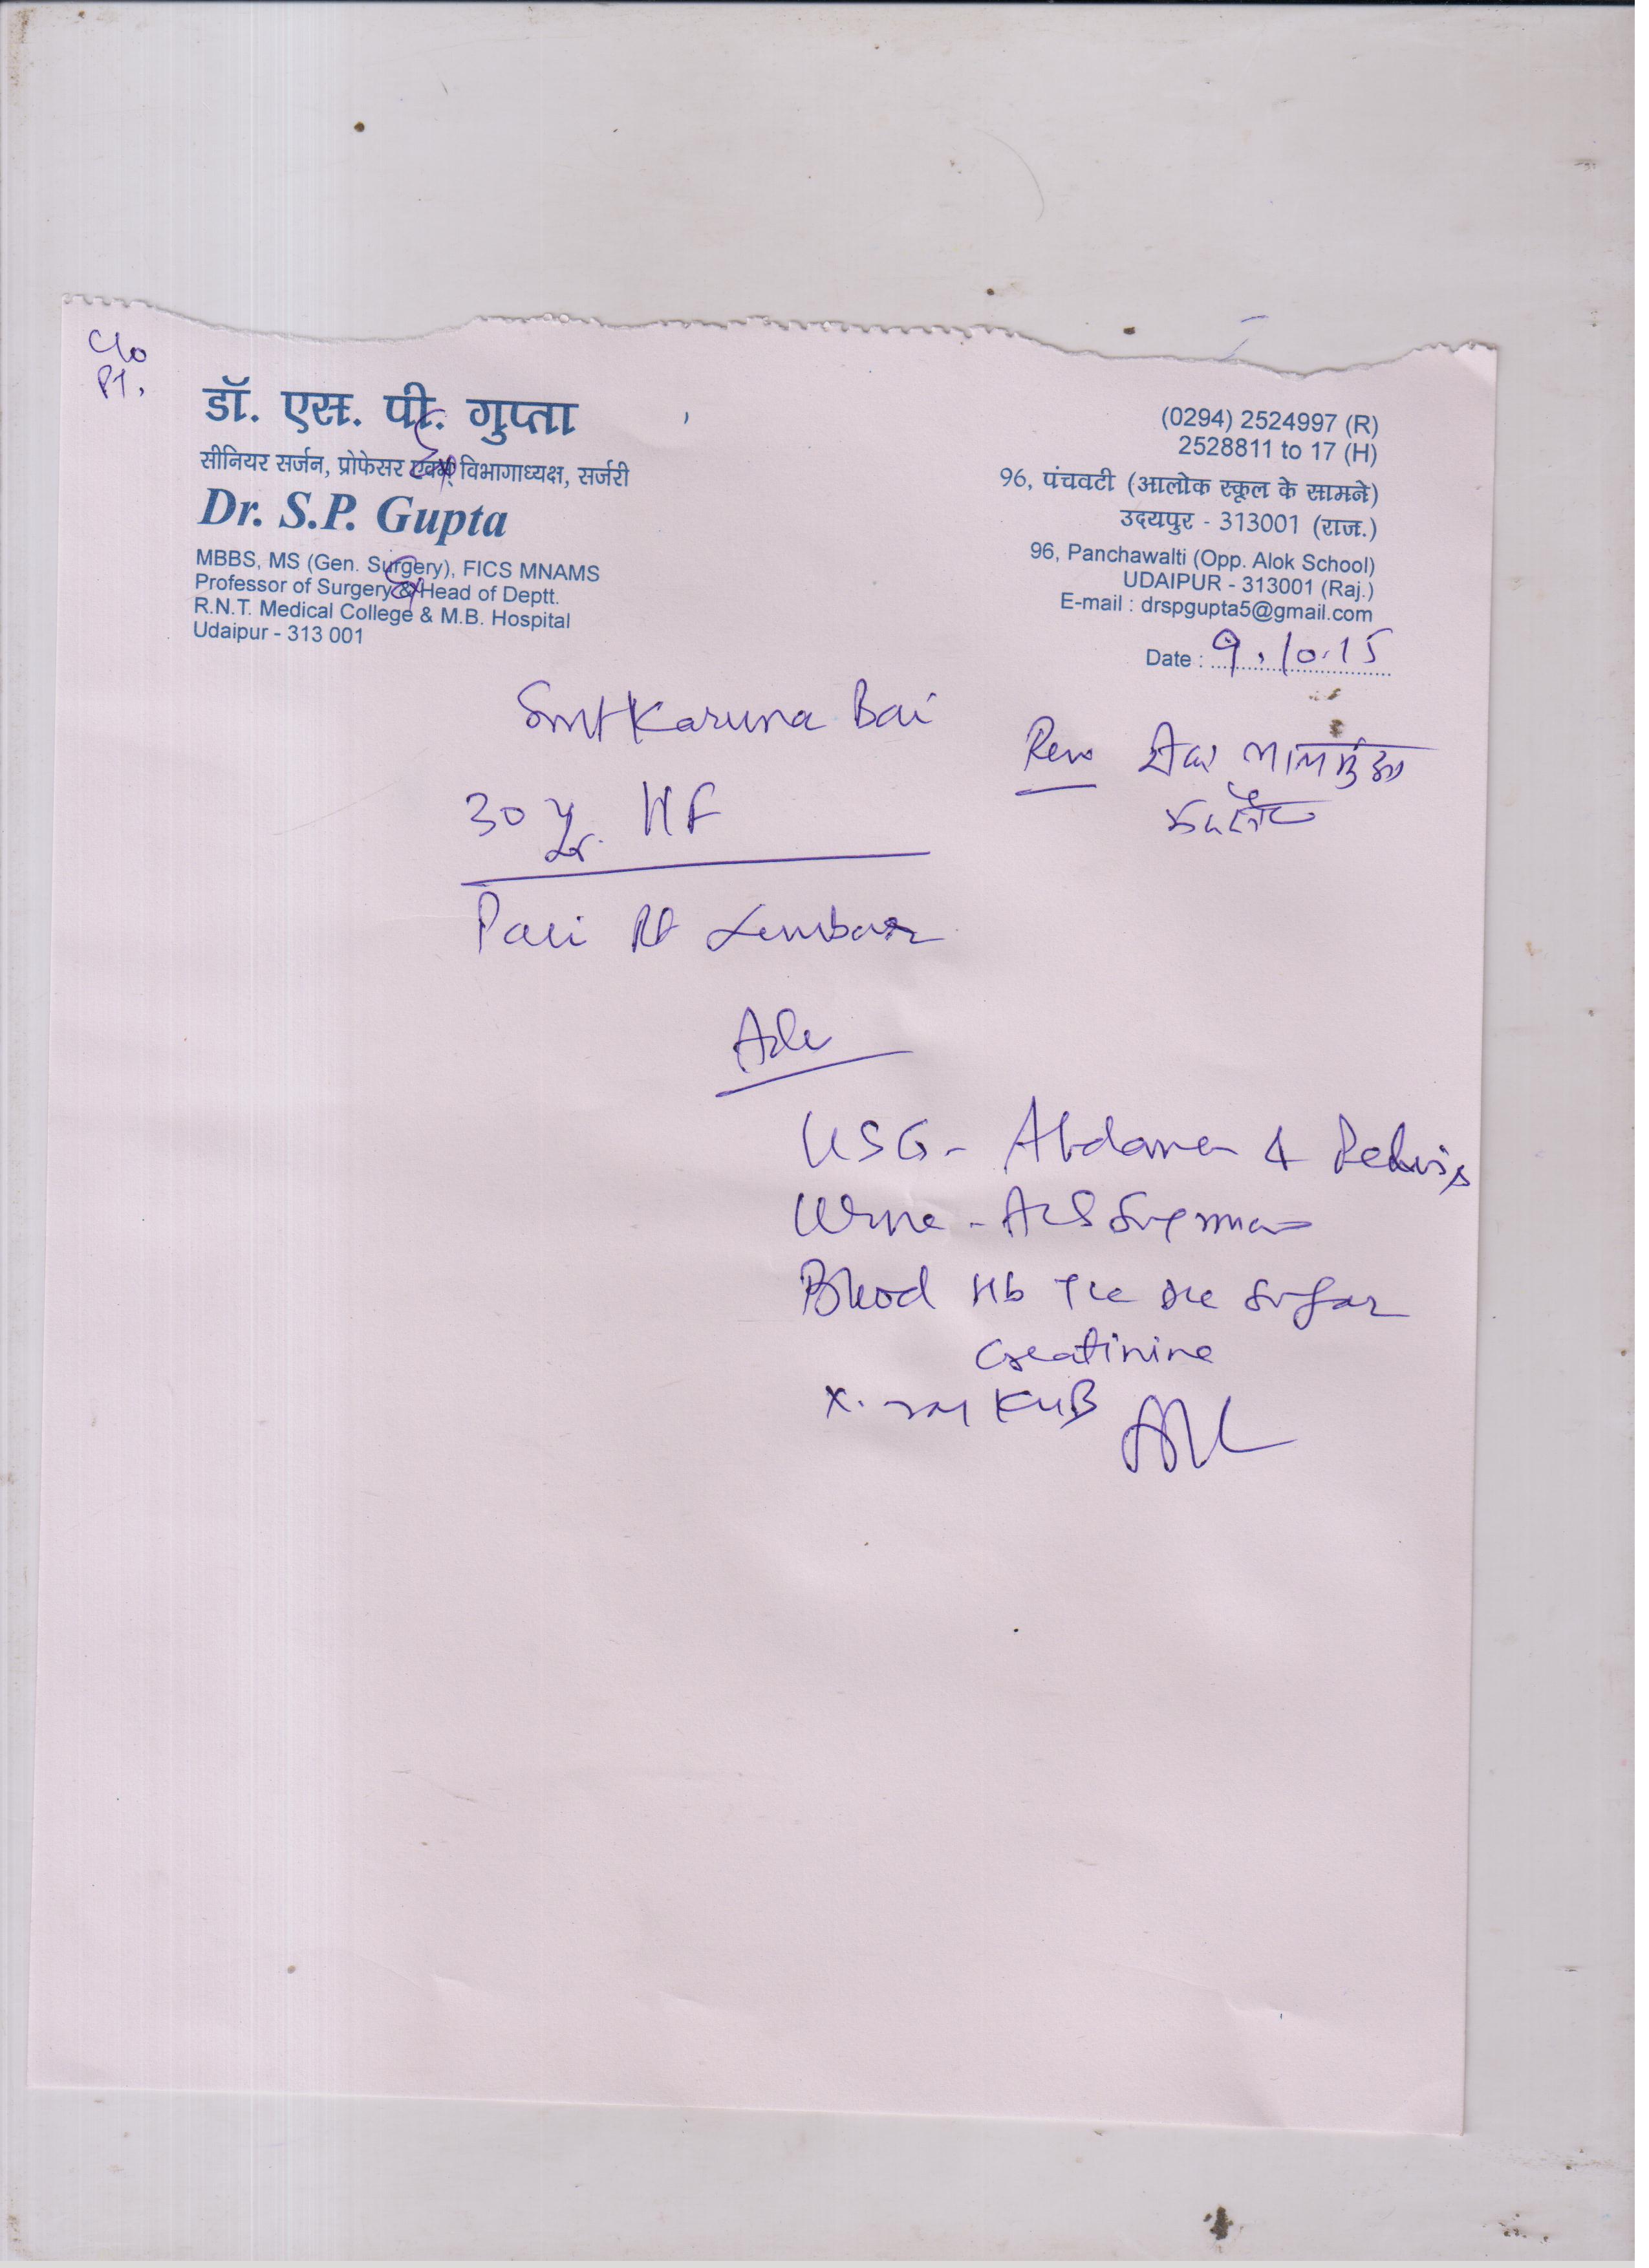 C/o
Pt.
डॉ. एस. पी. गुप्ता
सीनियर सर्जन, प्रोफेसर एवम् विभागाध्यक्ष, सर्जरी
Dr. S.P. Gupta
MBBS, MS (Gen. Surgery), FICS MNAMS
Professor of Surgery & Head of Deptt.
R.N.T. Medical College & M.B. Hospital
Udaipur - 313 001
(0294) 2524997 (R)
2528811 to 17 (H)
96, पंचवटी (आलोक स्कूल के सामने)
उदयपुर - 313001 (राज.)
96, Panchawalti (Opp. Alok School)
UDAIPUR - 313001 (Raj.)
E-mail : drspgupta5@gmail.com
Date : 9.10.15
Smt Karuna Bai
30 Yr. HF
Pain Rt Lumbar
Adv
USG - Abdomen & Pelvis
Urine - Alb Sug mic
Blood Hb TLC DLC Sugar
Creatinine
X-ray KUB